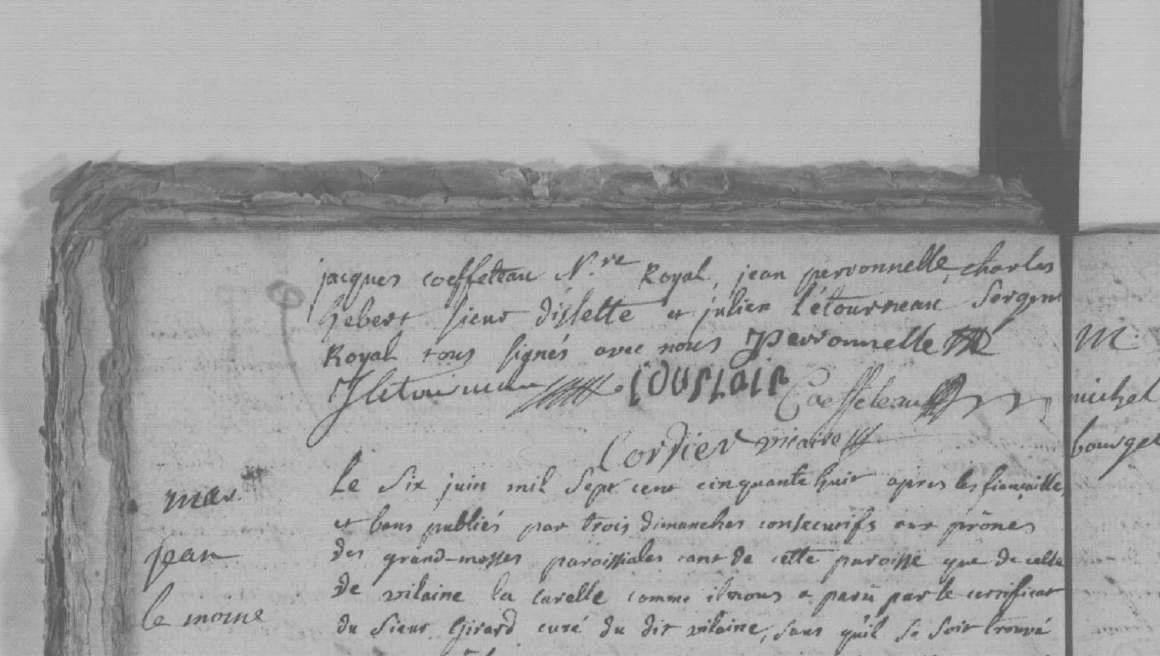 jacques coeffeteau N.re Royal, jean peronnelle, charles
hebert sieur dislette et julien l'étourneau Sergent
Royal tous signés avec nous Peronnelle
Jletourneau Couslair Coeffeteau
Cordier vicaire
Le Six juin mil Sept cent cinquante huit apres les fiançailles
et bans publiés par trois dimanches consecutifs aux prônes
des grand-messes paroissiales tant de cette paroisse que de celle
de vilaine la Carelle comme il nous a paru par le certificat
du Sieur Girard curé du dit vilaine, sans qu'il se soit trouvé
mar.
jean
le moine
M.
michel
bourget